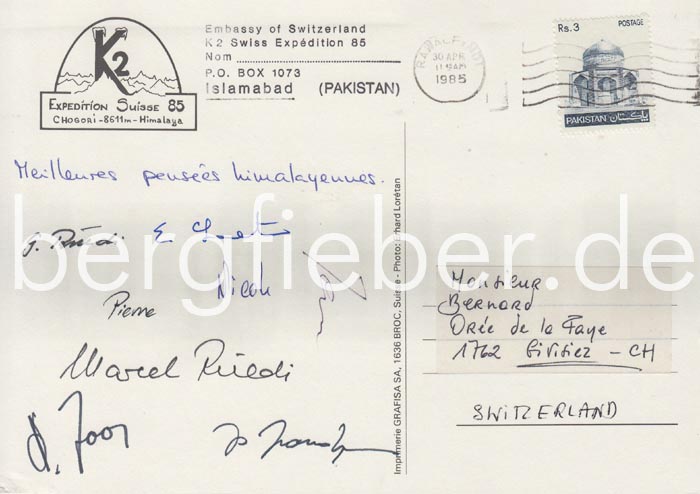 K2
EXPEDITION SUISSE 85
CHOGORI - 8611m - Himalaya
Embassy of Switzerland
K2 Swiss Expédition 85
Nom
P.O. BOX 1073
Islamabad (PAKISTAN)
RAWALPINDI
30 APR
11 30AM
1985
Rs. 3 POSTAGE
PAKISTAN پاکستان
Meilleures pensées himalayennes.
bergfieber.de
Nicole
Pierre
Marcel Rüedi
Imprimerie GRAFISA SA, 1636 BROC, Suisse - Photo: Erhard Lorétan
Monsieur
Bernard
Orée de la Faye
1762 Givisiez - CH
SWITZERLAND